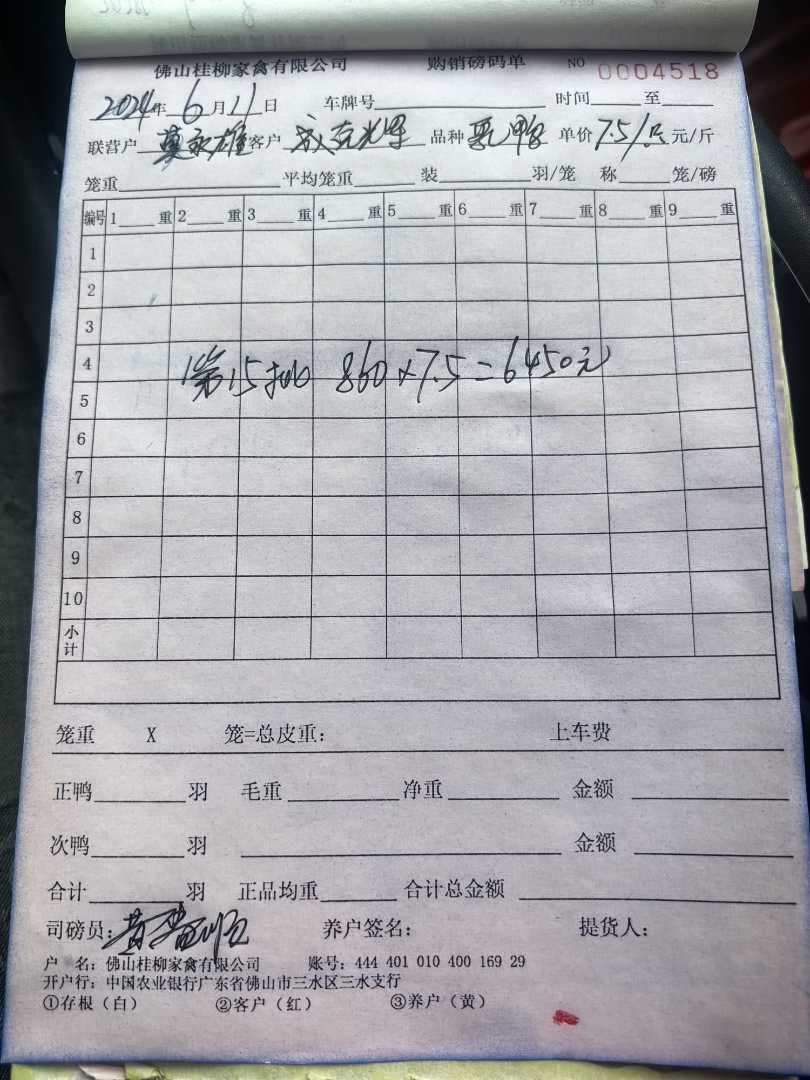 佛山桂柳家禽有限公司 购销磅码单 NO 0004518
2024年6月11日 车牌号 时间 至
联营户 莫永雄 客户 品种 乳鸭 单价 7.5/只 元/斤
笼重 平均笼重 装 羽/笼 称 笼/磅
编号 1 重 2 重 3 重 4 重 5 重 6 重 7 重 8 重 9 重
1
2
3
4
第15批 860×7.5=6450元
5
6
7
8
9
10
小计
笼重 X 笼=总皮重: 上车费
正鸭 羽 毛重 净重 金额
次鸭 羽 金额
合计 羽 正品均重 合计总金额
司磅员: 黄 养户签名: 提货人:
户 名: 佛山桂柳家禽有限公司 账号: 444 401 010 400 169 29
开户行: 中国农业银行广东省佛山市三水区三水支行
①存根(白) ②客户(红) ③养户(黄)